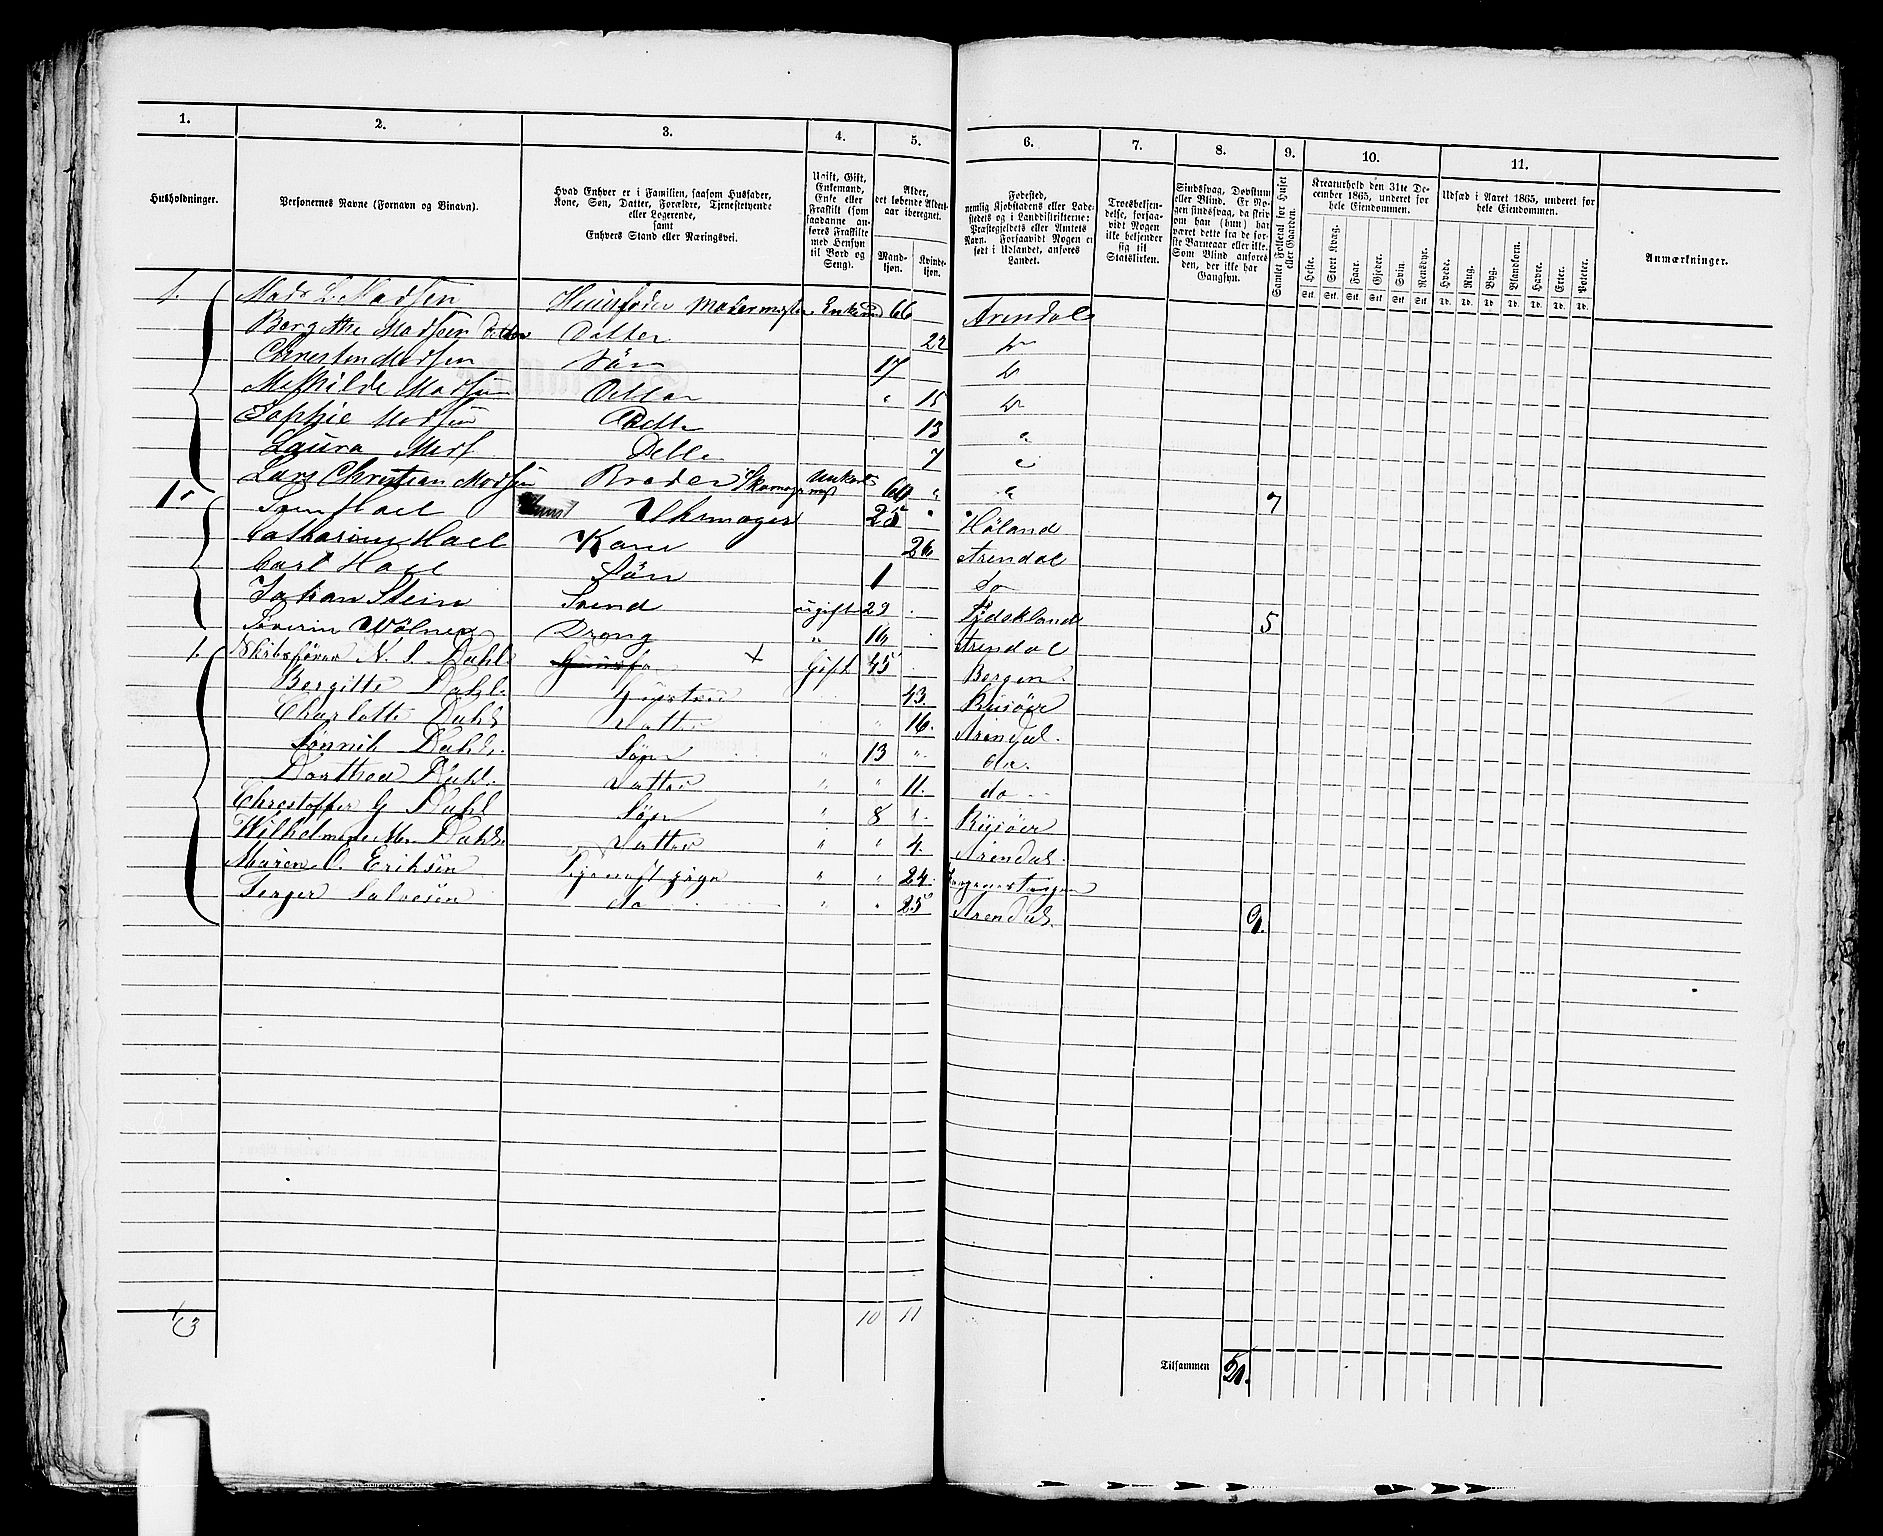 1. 2. 3. 4. 5. 6. 7. 8. 9. 10. 11.
Husholdninger.
Personernes Navne (Fornavn og Binavn).
Hvad Enhver er i Familien, saasom Husfader,
Kone, Søn, Datter, Forældre, Tjenestetyende
eller Logerende,
samt
Enhvers Stand eller Næringsvei.
Ugift, Gift,
Enkemand,
Enke eller
Fraskilt (som
saadanne an-
føres Fraskilte
med Hensyn
til Bord og
Seng).
Alder,
det løbende Alders-
aar iberegnet.
Mand-
kjøn.
Kvinde-
kjøn.
Fødested,
nemlig Kjøbstadens eller Lade-
stedets og i Landdistrikterne:
Præstegjeldets eller Amtets
Navn. Forsaavidt Nogen er
født i Udlandet, anføres
Landet.
Troesbekjen-
delse, forsaa-
vidt Nogen
ikke bekjender
sig til
Statskirken.
Sindssvag, Døvstum
eller Blind. Er No-
gen sindssvag, da skriv
om han (hun) har
været dette fra de før-
ste Barneaar eller ikke.
Som Blind anføres
den, der ikke har
Gangsyn.
Samlet Folketal for Huset
eller Gaarden.
Kreaturhold den 31te De-
cember 1865, underet for
hele Eiendommen.
Heste. Stort Kvæg. Faar. Gjeder. Svin. Rensdyr.
Stk. Stk. Stk. Stk. Stk. Stk.
Udsæd i Aaret 1865, underet for
hele Eiendommen.
Hvede. Rug. Byg. Blandkorn. Havre. Erter. Poteter.
Td. Td. Td. Td. Td. Td. Td.
Anmærkninger.
1. Mads L. Madsen Enkemd 66 Arendal
Madsen Datter 22 do
Christen Madsen Søn 17 do
Mathilde Madsen 15 do
Sophie Madsen 13 "
Laura 7 "
Lars Christian Madsen Broder 60 " " 7
1 Sven Hoel 25 " Høland
Catharine Hoel Kone 26 Arendal
Carl Hoel Søn 1 do
Johan Stein Svend ugift 29 5
Severin Dreng " 16 Arendal
1. Skibsfører N. S. Dahl X Gift 45 Bergen.
Bergitte Dahl. Hustru 43. Risöer
Charlotte Dahl Datter " 16. Arendal.
Dahl. Søn " 13 " do.
Dorthea Dahl. Datter " " 11. do
Christoffer G Dahl Søn " 8 " Risöer
Wilhelmine M. Dahl. Datter " " 4. Arendal.
Maren O. Eriksen Tjenestpige " " 24.
Salvesen do " " 25 Arendal. 9.
3 10 11
Tilsammen 21.